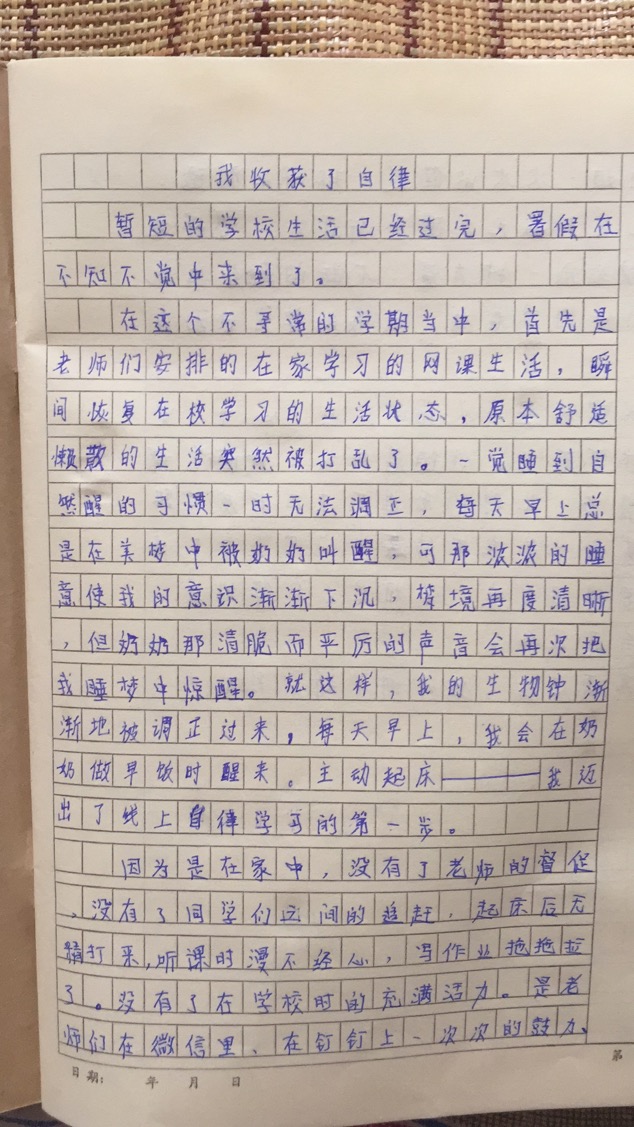 我收获了自律
暂短的学校生活已经过完，暑假在
不知不觉中来到了。
在这个不寻常的学期当中，首先是
老师们安排的在家学习的网课生活，瞬
间恢复在校学习的生活状态，原本舒适
懒散的生活突然被打乱了。一觉睡到自
然醒的习惯一时无法调正，每天早上总
是在美梦中被奶奶叫醒，可那浓浓的睡
意使我的意识渐渐下沉，梦境再度清晰
，但奶奶那清脆而平厉的声音会再次把
我睡梦中惊醒。就这样，我的生物钟渐
渐地被调正过来，每天早上，我会在奶
奶做早饭时醒来。主动起床——我迈
出了线上自律学习的第一步。
因为是在家中，没有了老师的督促
，没有了同学们之间的追赶，起床后无
精打采，听课时漫不经心，写作业拖拖拉
了。没有了在学校时的充满活力。是老
师们在微信里、在钉钉上一次次的鼓力、
日期： 年 月 日
第